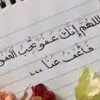 اللهم إنك عفو تحب العفو
فاعف عنا ...